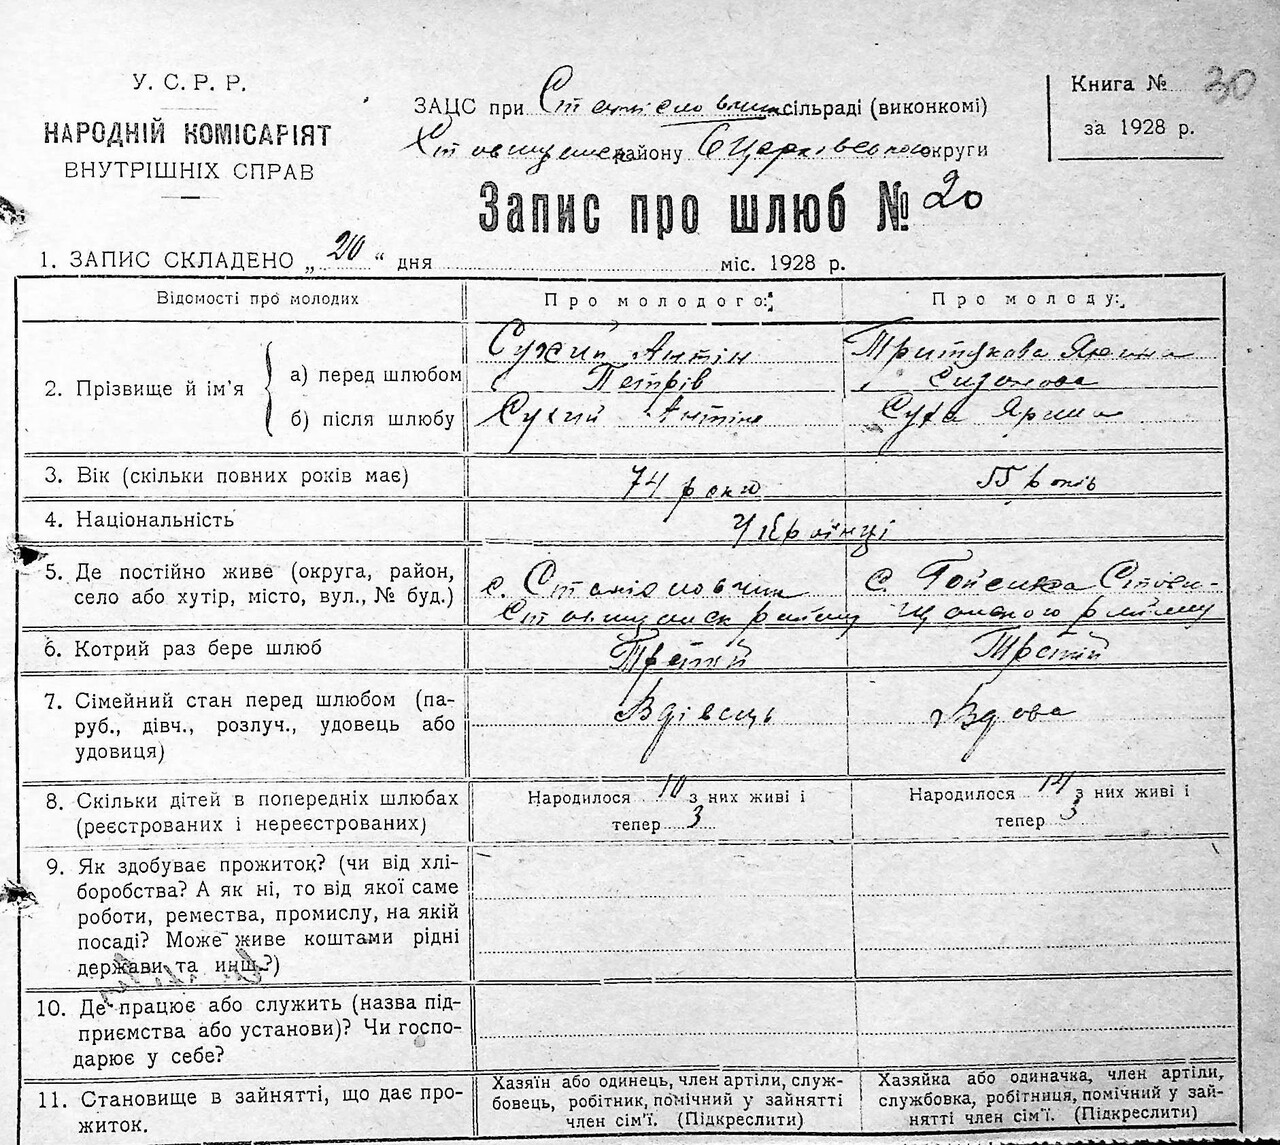 У. С. Р. Р.
НАРОДНІЙ КОМІСАРІЯТ
ВНУТРІШНІХ СПРАВ
ЗАЦС при сільраді (виконкомі)
району округи
Книга № 30
за 1928 р.
Запис про шлюб № 20
1. ЗАПИС СКЛАДЕНО „ “ дня міс. 1928 р.
Відомості про молодих
Про молодого:
Про молоду:
2. Прізвище й ім’я
а) перед шлюбом
Сухий Антін
Петрів
Ярина
б) після шлюбу
Сухий Антін
Суха Ярина
3. Вік (скільки повних років має)
74 роки
55 років
4. Національність
Українці
5. Де постійно живе (округа, район,
село або хутір, місто, вул., № буд.)
с.
району
с. Стави-
щанского району
6. Котрий раз бере шлюб
Третій
Третій
7. Сімейний стан перед шлюбом (па-
руб., дівч., розлуч., удовець або
удовиця)
Вдівець
Вдова
8. Скільки дітей в попередніх шлюбах
(реєстрованих і нереєстрованих)
Народилося 10 з них живі і
тепер 3
Народилося 14 з них живі і
тепер 3
9. Як здобуває прожиток? (чи від хлі-
боробства? А як ні, то від якої саме
роботи, ремества, промислу, на якій
посаді? Може живе коштами рідні
держави та инш.?)
10. Де працює або служить (назва під-
приємства або установи)? Чи госпо-
дарює у себе?
11. Становище в зайнятті, що дає про-
житок.
Хазяїн або одинець, член артіли, служ-
бовець, робітник, помічний у зайнятті
член сім’ї. (Підкреслити)
Хазяйка або одиначка, член артіли,
службовка, робітниця, помічний у зай-
нятті член сім’ї. (Підкреслити)